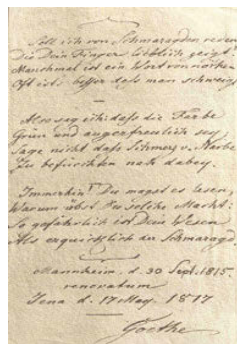 Soll ich von Schmaragden reden
Die Dein Finger lieblich zeigt?
Manchmal ist ein Wort von nöthen
Oft ist's besser dass man schweigt.
Also sag ich: dass die Farbe
Grün und augerfreulich sey
Sage nicht dass Schmerz u. Narbe
Zu befürchten nah dabey.
Immerhin! Du magst es lesen,
Warum übst Du solche Macht!
So gefährlich ist Dein Wesen
Als erquicklich der Schmaragd.
Mannheim. d. 30 Sept. 1815.
renovatum
Jena d. 17 May. 1817
Goethe